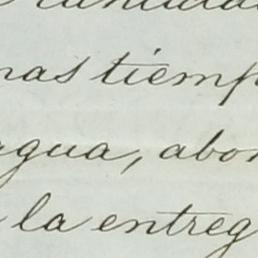 mas tiemp
agua, abon
la entreg